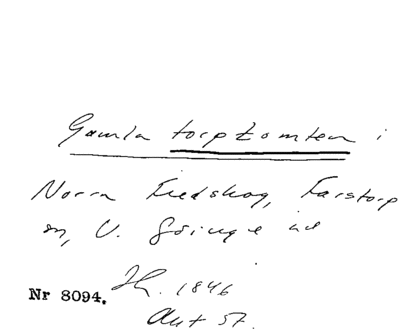 Gamla torptomten i
Norra Fredskog, Farstorp
sn, V. Göinge hd
Nr 8094. Jh. 1846
Ant 57.